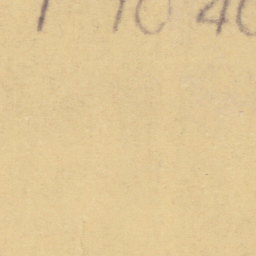 1 10 40